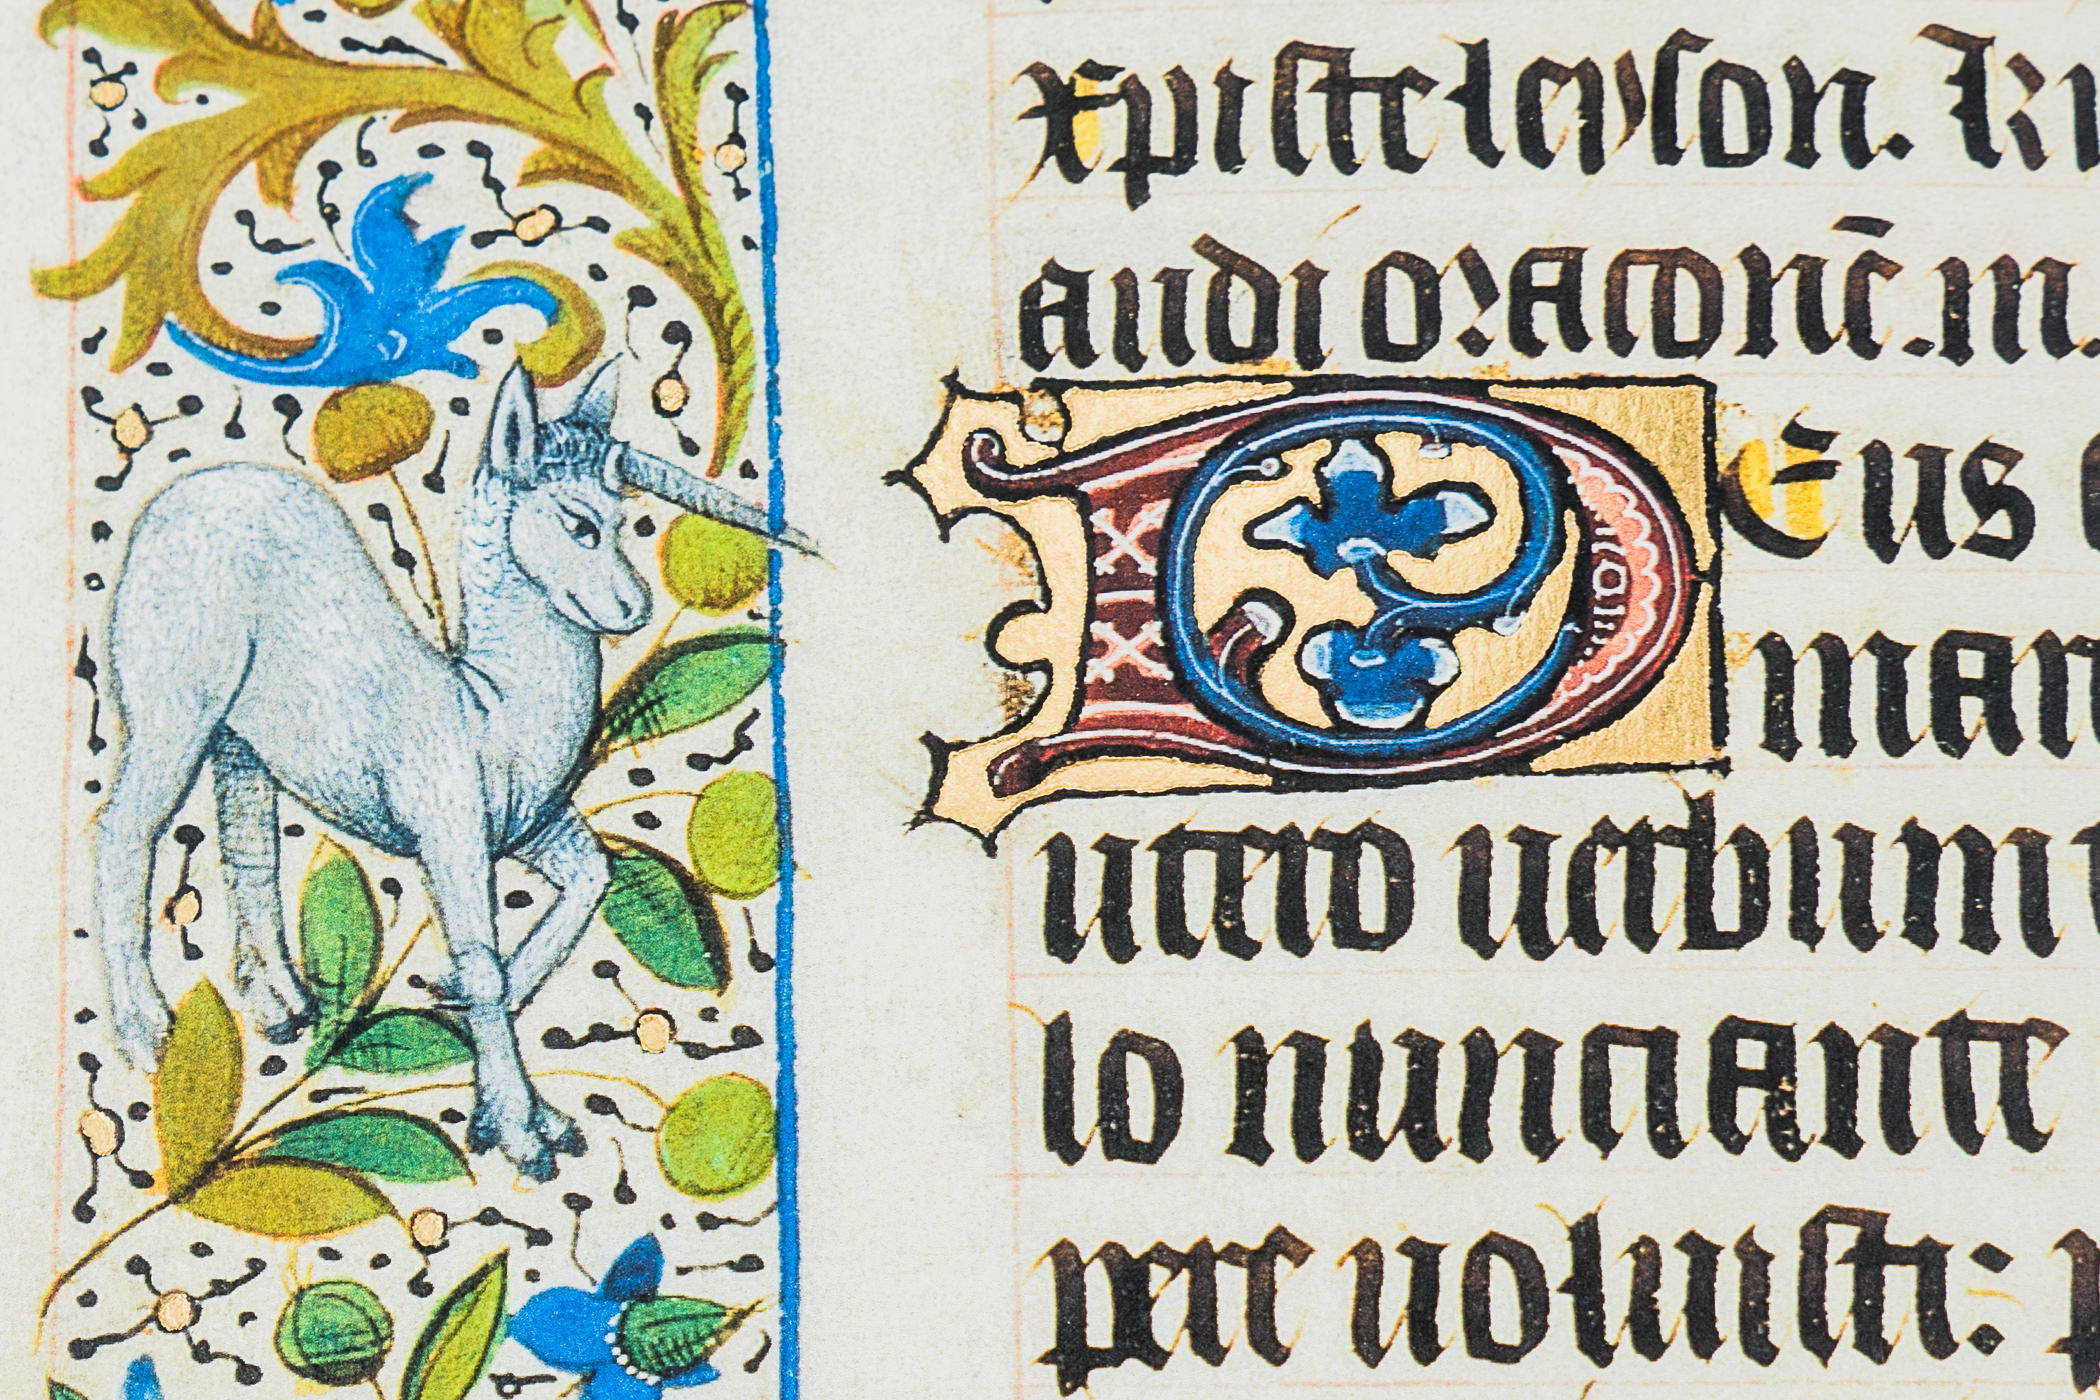 xpisteleyson. Ki
audi oraconē. m.
Deus
mar
utero uerbum
lo nunciante
pere uoluisti: